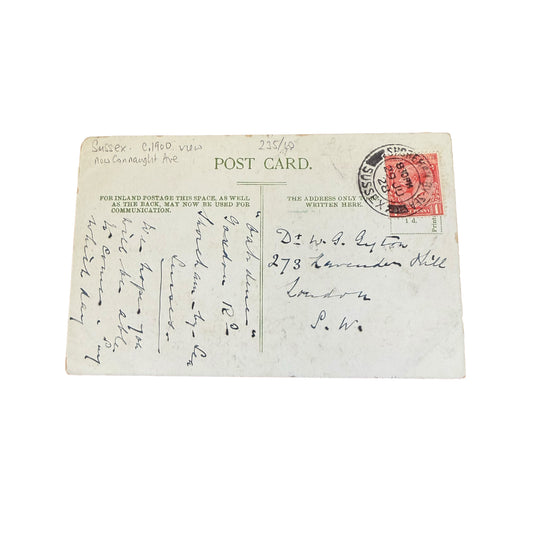 Sussex. C.1900 view
now Connaught Ave
235/10
POST CARD.
FOR INLAND POSTAGE THIS SPACE, AS WELL
AS THE BACK, MAY NOW BE USED FOR
COMMUNICATION.
THE ADDRESS ONLY TO
WRITTEN HERE.
"Oakdene"
Gordon Rd
Shoreham-by-Sea
Sussex.
We hope you
will be able
to come. Say
which day
Dr W. G.
273 Lavender Hill
London
S. W.
SUSSEX
8 PM
20
1
1d.
Print